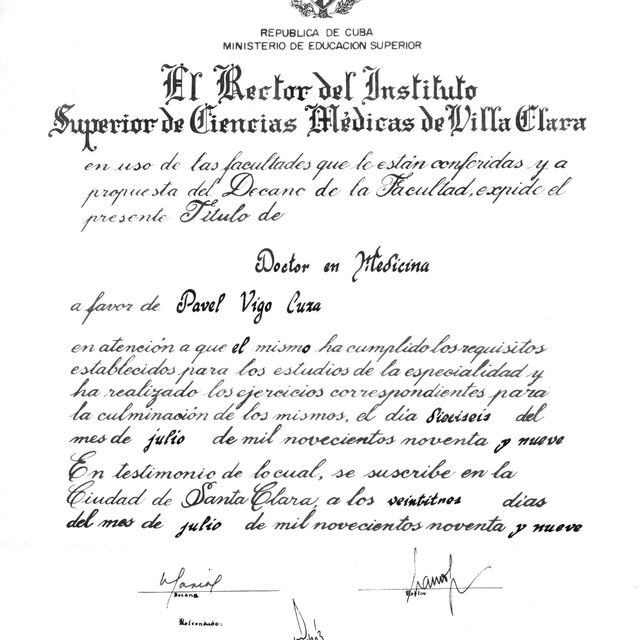 REPUBLICA DE CUBA
MINISTERIO DE EDUCACION SUPERIOR
El Rector del Instituto
Superior de Ciencias Médicas de Villa Clara
en uso de las facultades que le están conferidas y a
propuesta del Decano de la Facultad, expide el
presente Título de
Doctor en Medicina
a favor de Pavel Vigo Cuza
en atención a que el mismo ha cumplido los requisitos
establecidos para los estudios de la especialidad y
ha realizado los ejercicios correspondientes para
la culminación de los mismos, el día dieciseis del
mes de julio de mil novecientos noventa y nueve
En testimonio de lo cual, se suscribe en la
Ciudad de Santa Clara, a los veintitres días
del mes de julio de mil novecientos noventa y nueve
Decano Rector
Refrendado: